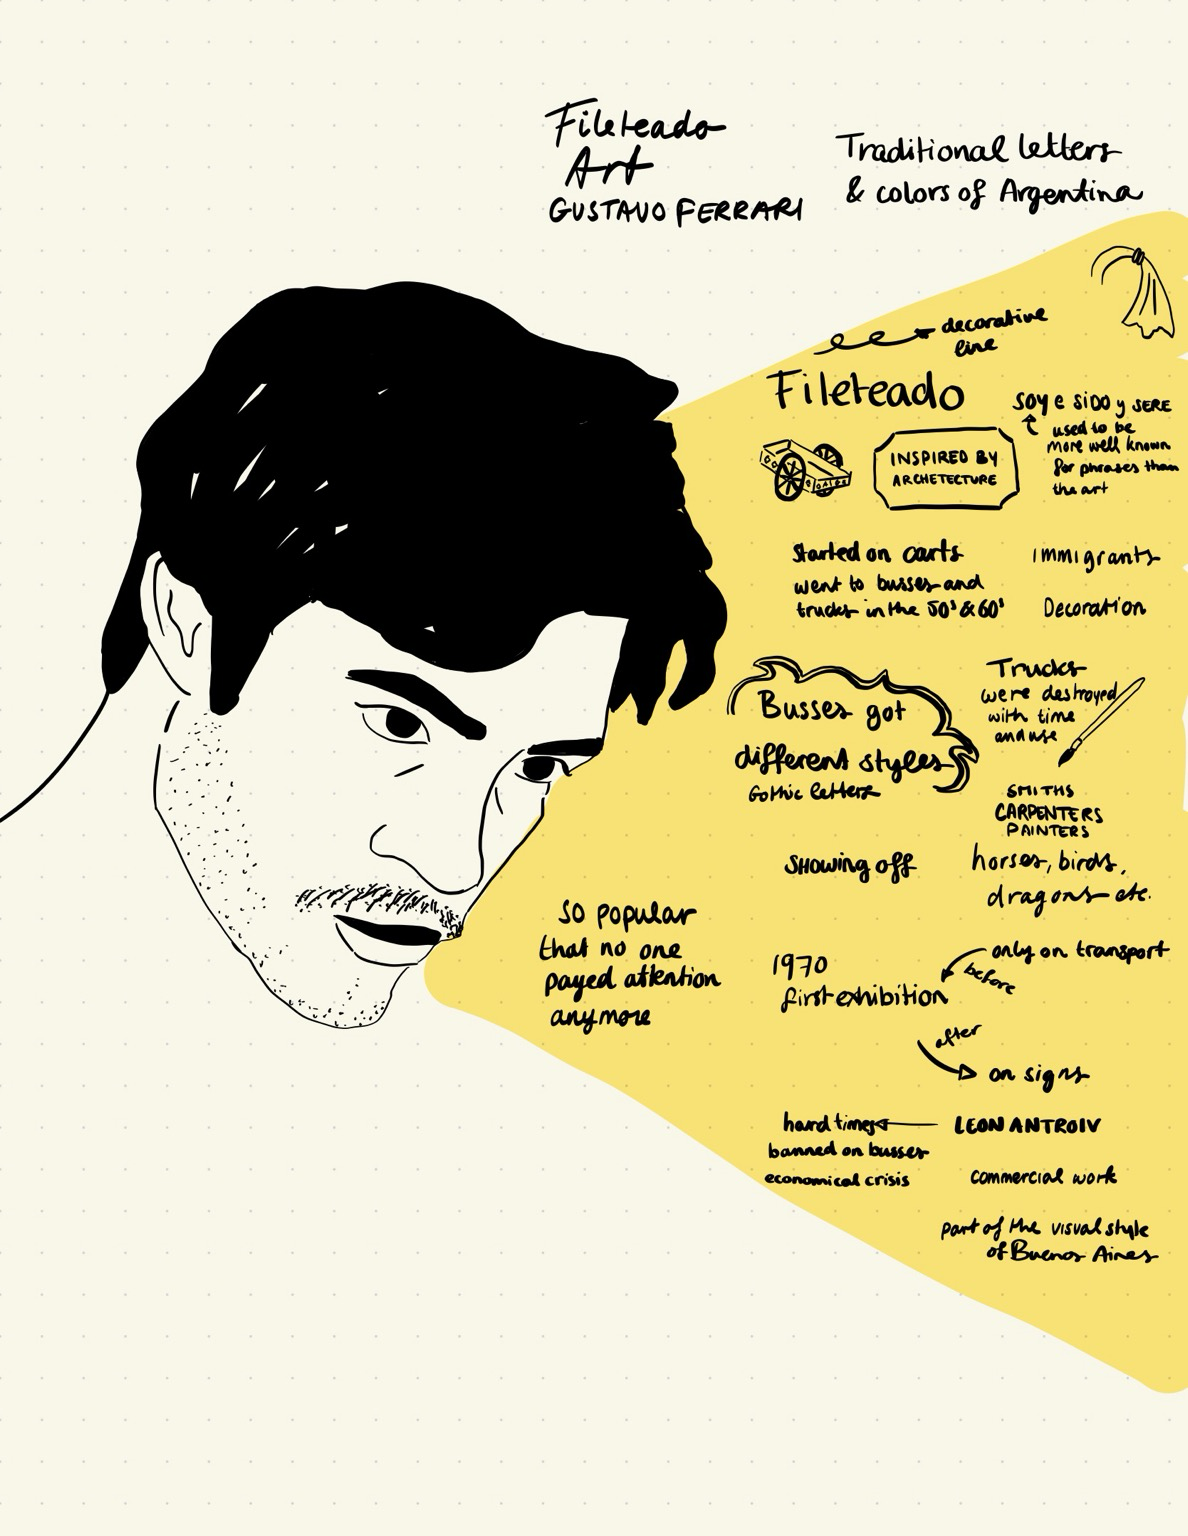 Fileteado
Art
GUSTAVO FERRARI
Traditional letters
& colors of Argentina
decorative
line
Fileteado
SOY e SIDO y SERE
used to be
more well known
for phrases than
the art
INSPIRED BY
ARCHETECTURE
Started on carts
went to busses and
trucks in the 50's & 60's
immigrants
Decoration
Busses got
different styles
Gothic letters
Trucks
were destroyed
with time
and use
SMITHS
CARPENTERS
PAINTERS
Showing off
horses, birds,
dragons etc.
SO popular
that no one
payed attention
anymore
1970
first exhibition
only on transport
before
after
on signs
hard times
banned on busses
economical crisis
LEON ANTROIV
commercial work
part of the visual style
of Buenos Aires